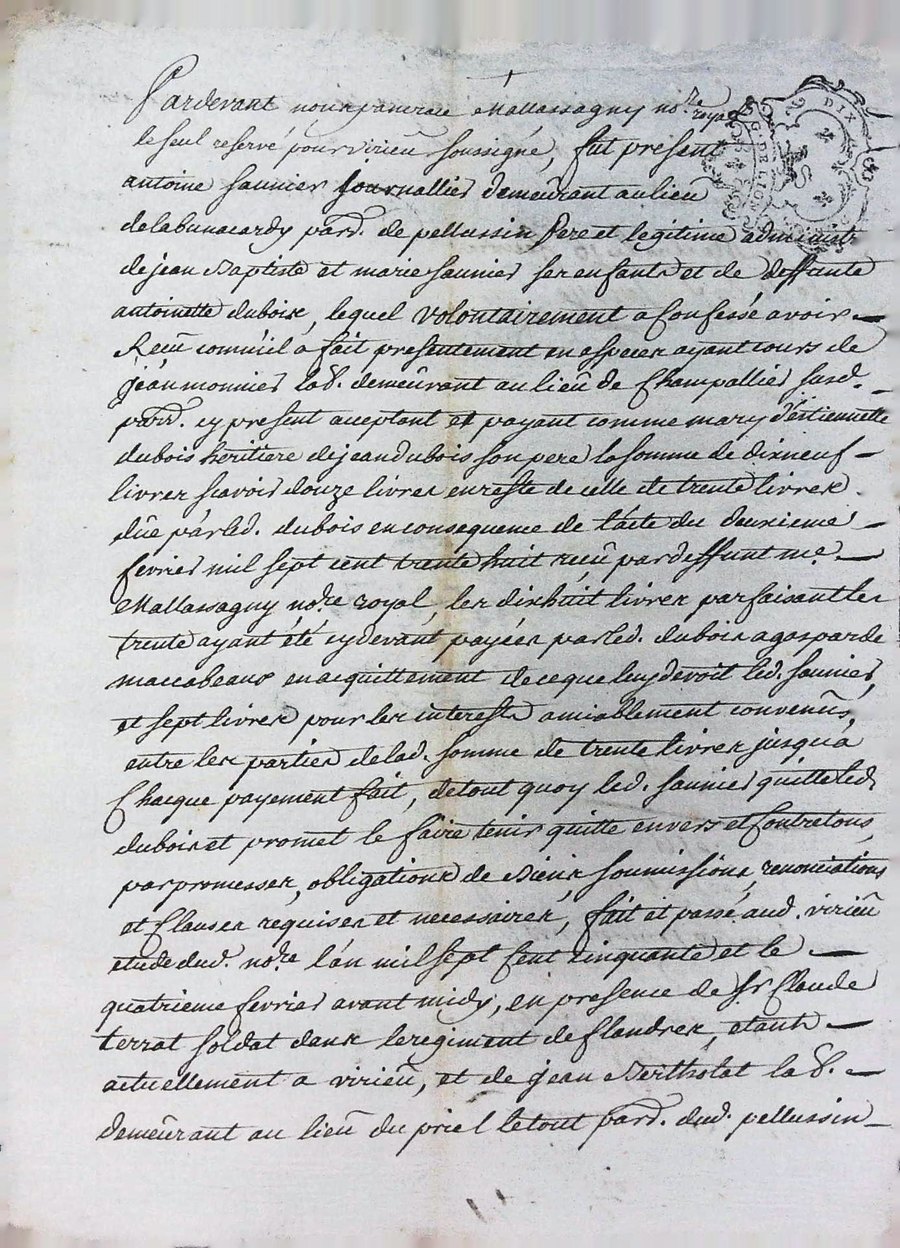 Pardevant nous pancrace Mallassagny no.re royal
DIX
G. DE LION
le seul reservé pour virieu soussigné, fut présent
antoine saunier journallier demeurant au lieu
de la bunacardy parr. de pellussin pere et legitime administr
de jean Baptiste et marie saunier ses enfants et de deffunte
antoinette dubois, lequel volontairement a confessé avoir
Receu comm'il a fait presentement en especes ayant cours de
jean monnier lab. demeurant au lieu de Champallier susd.
parr. cy present aceptant et payant comme mary d'estiennette
dubois heritiere de jean dubois son pere la somme de dixneuf
livres scavoir douze livres en reste de celle de trente livres
düe par led. dubois en consequence de l'acte du deuxieme
fevrier mil sept cent trente huit receu par deffunt me.
Mallassagny no.re royal, les dixhuit livres parfaisant les
trente ayant été cy devant payées par led. dubois a gasparde
maccabeaux en acquittement de ce que luy devoit led. saunier,
et sept livres pour les interests amiablement convenus,
entre les parties de lad. somme de trente livres jusqu'a
Chacque payement fait, de tout quoy led. saunier quitte led.
dubois et promet le faire tenir quitte envers et contre tous,
par promesses, obligations de Biens soumissions, renonciations
et Clauses requises et necessaires, fait et passé aud. virieu
etude dud. no.re l'an mil sept cent cinquante et le
quatrieme fevrier avant midy, en presence de Sr Claude
terrat soldat dans le regiment de flandres, etant
actuellement a virieu, et de jean Bertholat lab.
demeurant au lieu du priel le tout parr. dud. pellussin